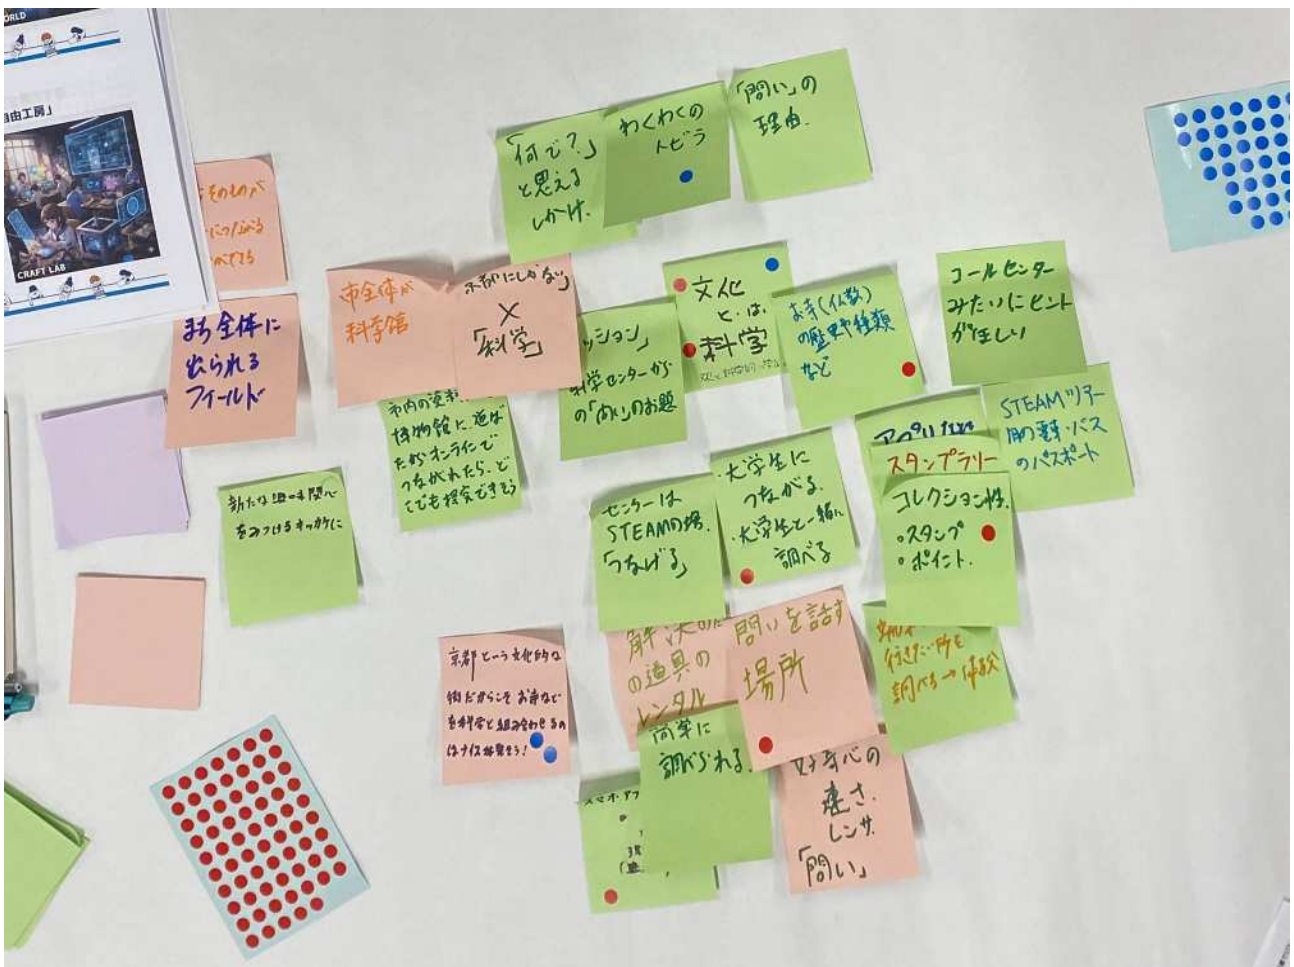 ORLD
自由工房」
CRAFT LAB
そのものが
「何で？」
と思える
しかけ.
わくわくの
トビラ
「問い」の
理由.
まち全体に
出られる
フィールド
市全体が
科学館
京都にしかない」
×
「科学」
ッション」
科学センターから
の「問い」のお題
文化
とは
科学
お寺(仏教)
の歴史や種類
など
コールセンター
みたいにヒント
がほしい
市内の
博物館に
たがオンラインで
つながれたら、ど
こでも探究できそう
新たな
をみつけるきっかけに
センターは
STEAMの場.
「つなげる」
・大学生に
つながる.
・大学生と一緒に
調べる
アプリ
スタンプラリー
コレクション性.
◦スタンプ
◦ポイント.
STEAMツアー
用の電車・バス
のパスポート
京都という文化的な
街だからこそお寺など
を科学と組み合わせるの
はナイス発想!
解決のため
の道具の
レンタル
問いを話す
場所
行きたい所を
調べる→
簡単に
調べられる.
好奇心の
速さ.
レンサ.
「問い」